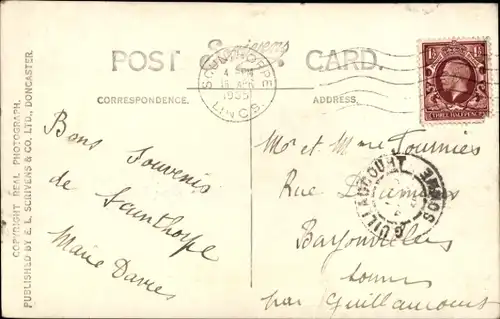 POST Scrivens CARD.
SCUNTHORPE
4 PM
1935
LINCS.
1½
THREE HALFPENCE
CORRESPONDENCE.
ADDRESS.
COPYRIGHT REAL PHOTOGRAPH.
PUBLISHED BY E. L. SCRIVENS & CO. LTD., DONCASTER.
Bons
Souvenirs
de Scunthorpe
Marie Davies
Mr et Mme Fournier
Rue
Bayonvillers
Somme
par Guillaucourt
GUILLAUCOURT
SOMME